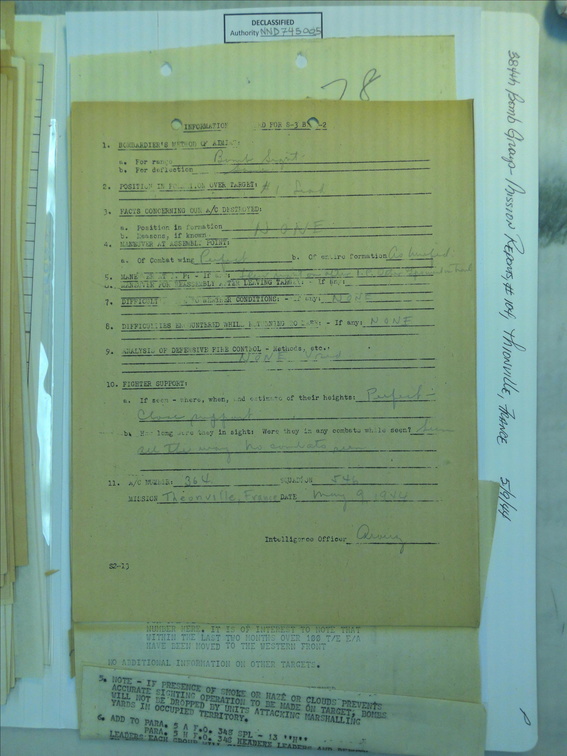 DECLASSIFIED
Authority NND745005
78
384th Bomb Group- Mission Reports, #104, Thionville, France 5/9/44
INFORMATION FOR S-3
1. BOMBARDIER'S METHOD OF AIMING:
a. For range Bomb Sight
b. Per deflection
2. POSITION IN OVER TARGET: #1 Lead
3. FACTS CONCERNING OUR A/C DESTROYED:
a. Position in formation NONE
b. Reasons, if known
4. MANEUVER AT ASSEMBLY POINT:
a. Of Combat wing Perfect b. Of entire formation As briefed
5. - If any:
6. MANEUVER FOR REASSEMBLY AFTER LEAVING TARGET: - If any:
7. DIFFICULTY WEATHER CONDITIONS: - If any: NONE
8. DIFFICULTIES ENCOUNTERED WHILE RETURNING TO BASE: - If any: NONE
9. ANALYSIS OF DEFENSIVE FIRE CONTROL - Methods, etc.:
NONE
10. FIGHTER SUPPORT:
a. If seen - where, when, and estimate of their heights: Perfect -
Close support
b. How long were they in sight: Were they in any combats while seen?
all the way no combats seen
11. A/C NUMBER: 364 SQUADRON 546
MISSION Thionville, France DATE May 9, 1944
Intelligence Officer
S2-13
NUMBER HERE. IT IS OF INTEREST TO NOTE THAT
WITHIN THE LAST TWO MONTHS OVER 100 T/E E/A
HAVE BEEN MOVED TO THE WESTERN FRONT
NO ADDITIONAL INFORMATION ON OTHER TARGETS.
5. NOTE - IF PRESENCE OF SMOKE OR HAZE OR CLOUDS PREVENTS
ACCURATE SIGHTING OPERATION TO BE MADE ON TARGET, BOMBS
WILL NOT BE DROPPED BY UNITS ATTACKING MARSHALLING
YARDS IN OCCUPIED TERRITORY.
6. ADD TO PARA. 3 A F.O. 348 SPL - 13 "H"
PARA. 3 H F.O. 348 LEADERS AND
LEADERS EACH GROUP